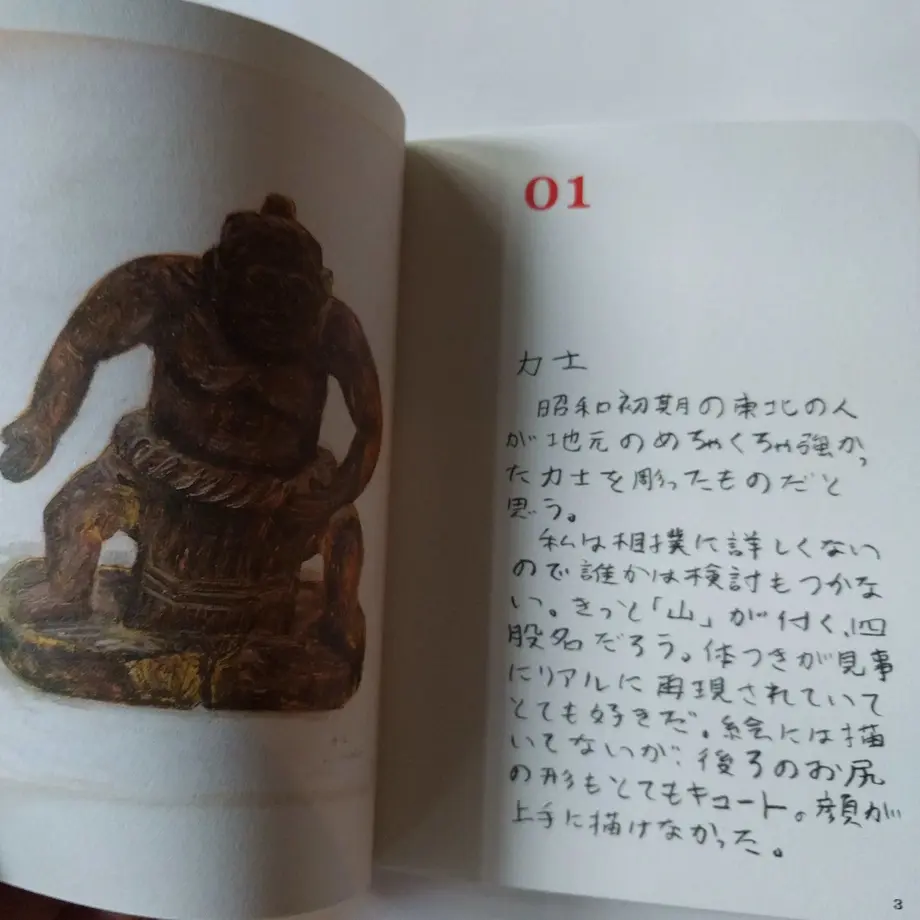 01
力士
昭和初期の東北の人
が地元のめちゃくちゃ強かっ
た力士を彫ったものだと
思う。
私は相撲に詳しくない
ので誰かは検討もつかな
い。きっと「山」が付く、四
股名だろう。体つきが見事
にリアルに再現されていて
とても好きだ。絵には描
いてないが、後ろのお尻
の形もとてもキュート。顔が
上手に描けなかった。
3